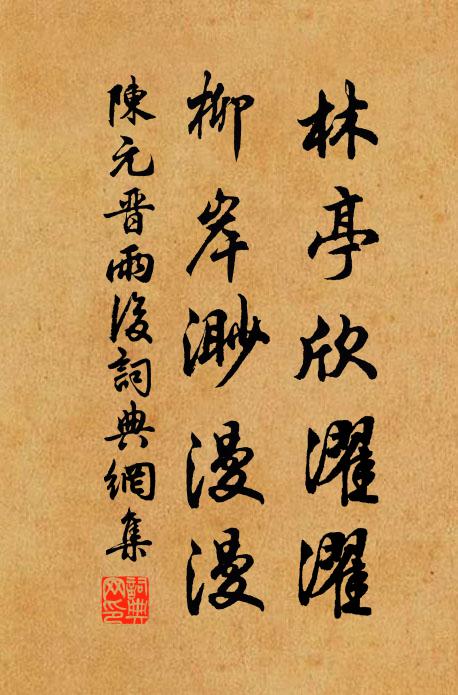 林亭欣濯濯
柳岸渺漫漫
陳元晋雨後詞典網集
詞典網印